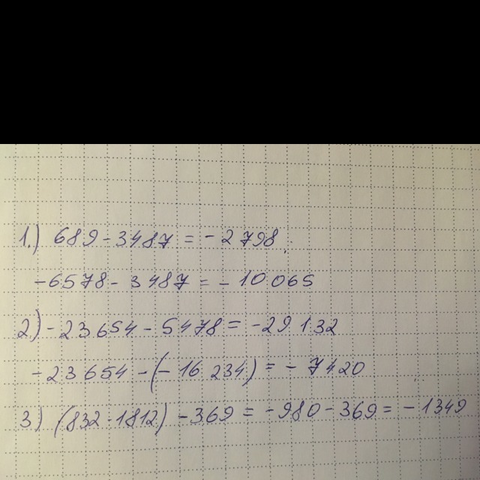 1.) 689-3487 = -2798;
-6578-3487 = -10065
2) -23654-5478 = -29132
-23654-(-16234) = -7420
3) (832-1812)-369 = -980-369 = -1349